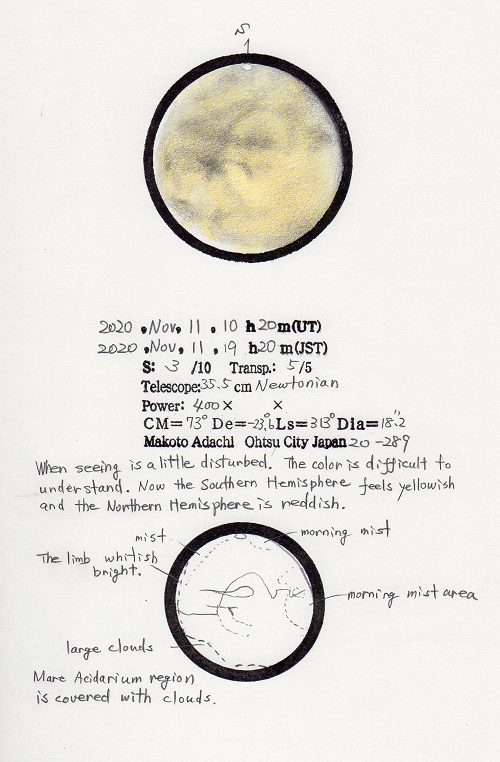 S
2020, Nov, 11, 10 h 20 m(UT)
2020, Nov, 11, 19 h 20 m(JST)
S: 3 /10 Transp.: 5/5
Telescope: 35.5 cm Newtonian
Power: 400× ×
CM=73° De=-23.6 Ls=313° Dia=18".2
Makoto Adachi Ohtsu City Japan 20-289
When seeing is a little disturbed. The color is difficult to
understand. Now the Southern Hemisphere feels yellowish
and the Northern Hemisphere is reddish.
mist
morning mist
The limb whitish
bright.
morning mist area
large clouds
Mare Acidarium region
is covered with clouds.